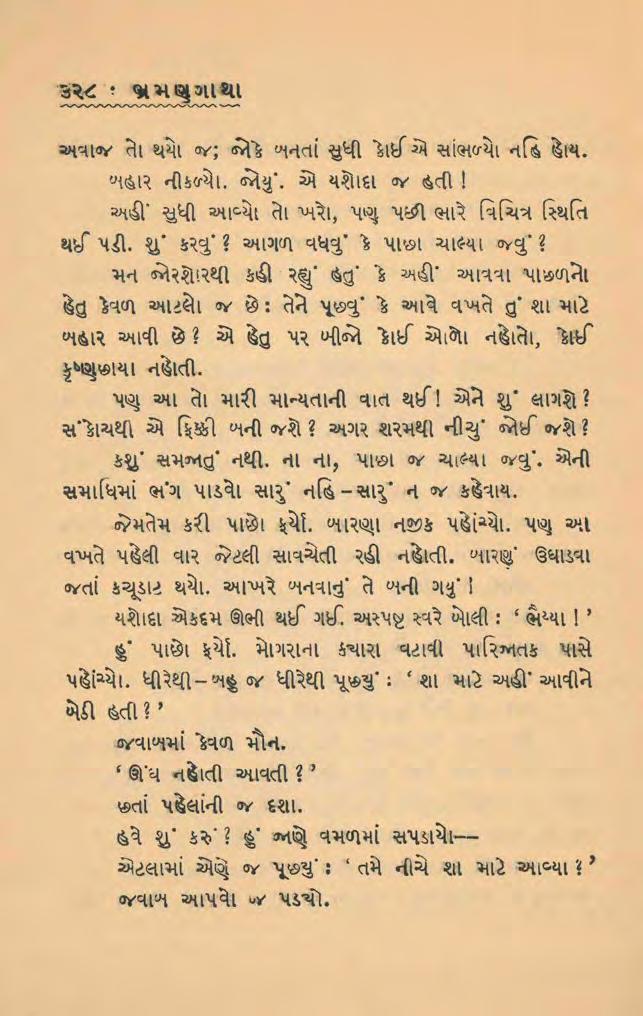 ૬૨૮ : ભ્રમણગાથા
અવાજ તો થયો જ; જોકે બનતાં સુધી કોઈ એ સાંભળ્યો નહિ હોય.
બહાર નીકળ્યો. જોયું. એ યશોદા જ હતી !
અહીં સુધી આવ્યો તો ખરો, પણ પછી ભારે વિચિત્ર સ્થિતિ
થઈ પડી. શું કરવું ? આગળ વધવું કે પાછા ચાલ્યા જવું ?
મન જોરશોરથી કહી રહ્યું હતું કે અહીં આવવા પાછળનો
હેતુ કેવળ આટલો જ છે : તેને પૂછવું કે આવે વખતે તું શા માટે
બહાર આવી છે ? એ હેતુ પર બીજો કોઈ ઓળો નહોતો, કોઈ
કૃષ્ણછાયા નહોતી.
પણ આ તો મારી માન્યતાની વાત થઈ ! એને શું લાગશે ?
સંકોચથી એ ફિક્કી બની જશે ? અગર શરમથી નીચું જોઈ જશે ?
કશું સમજાતું નથી. ના ના, પાછા જ ચાલ્યા જવું. એની
સમાધિમાં ભંગ પાડવો સારું નહિ – સારું ન જ કહેવાય.
જેમતેમ કરી પાછો ફર્યો. બારણા નજીક પહોંચ્યો. પણ આ
વખતે પહેલી વાર જેટલી સાવચેતી રહી નહોતી. બારણું ઉઘાડવા
જતાં કચૂડાટ થયો. આખરે બનવાનું તે બની ગયું !
યશોદા એકદમ ઊભી થઈ ગઈ. અસ્પષ્ટ સ્વરે બોલી : ‘ ભૈય્યા ! ’
હું પાછો ફર્યો. મોગરાના ક્યારા વટાવી પારિજાતક પાસે
પહોંચ્યો. ધીરેથી – બહુ જ ધીરેથી પૂછયું : ‘ શા માટે અહીં આવીને
બેઠી હતી ? ’
જવાબમાં કેવળ મૌન.
‘ ઊંઘ નહોતી આવતી ? ’
છતાં પહેલાંની જ દશા.
હવે શું કરું ? હું જાણે વમળમાં સપડાયો—
એટલામાં એણે જ પૂછયું : ‘ તમે નીચે શા માટે આવ્યા ? ’
જવાબ આપવો જ પડયો.